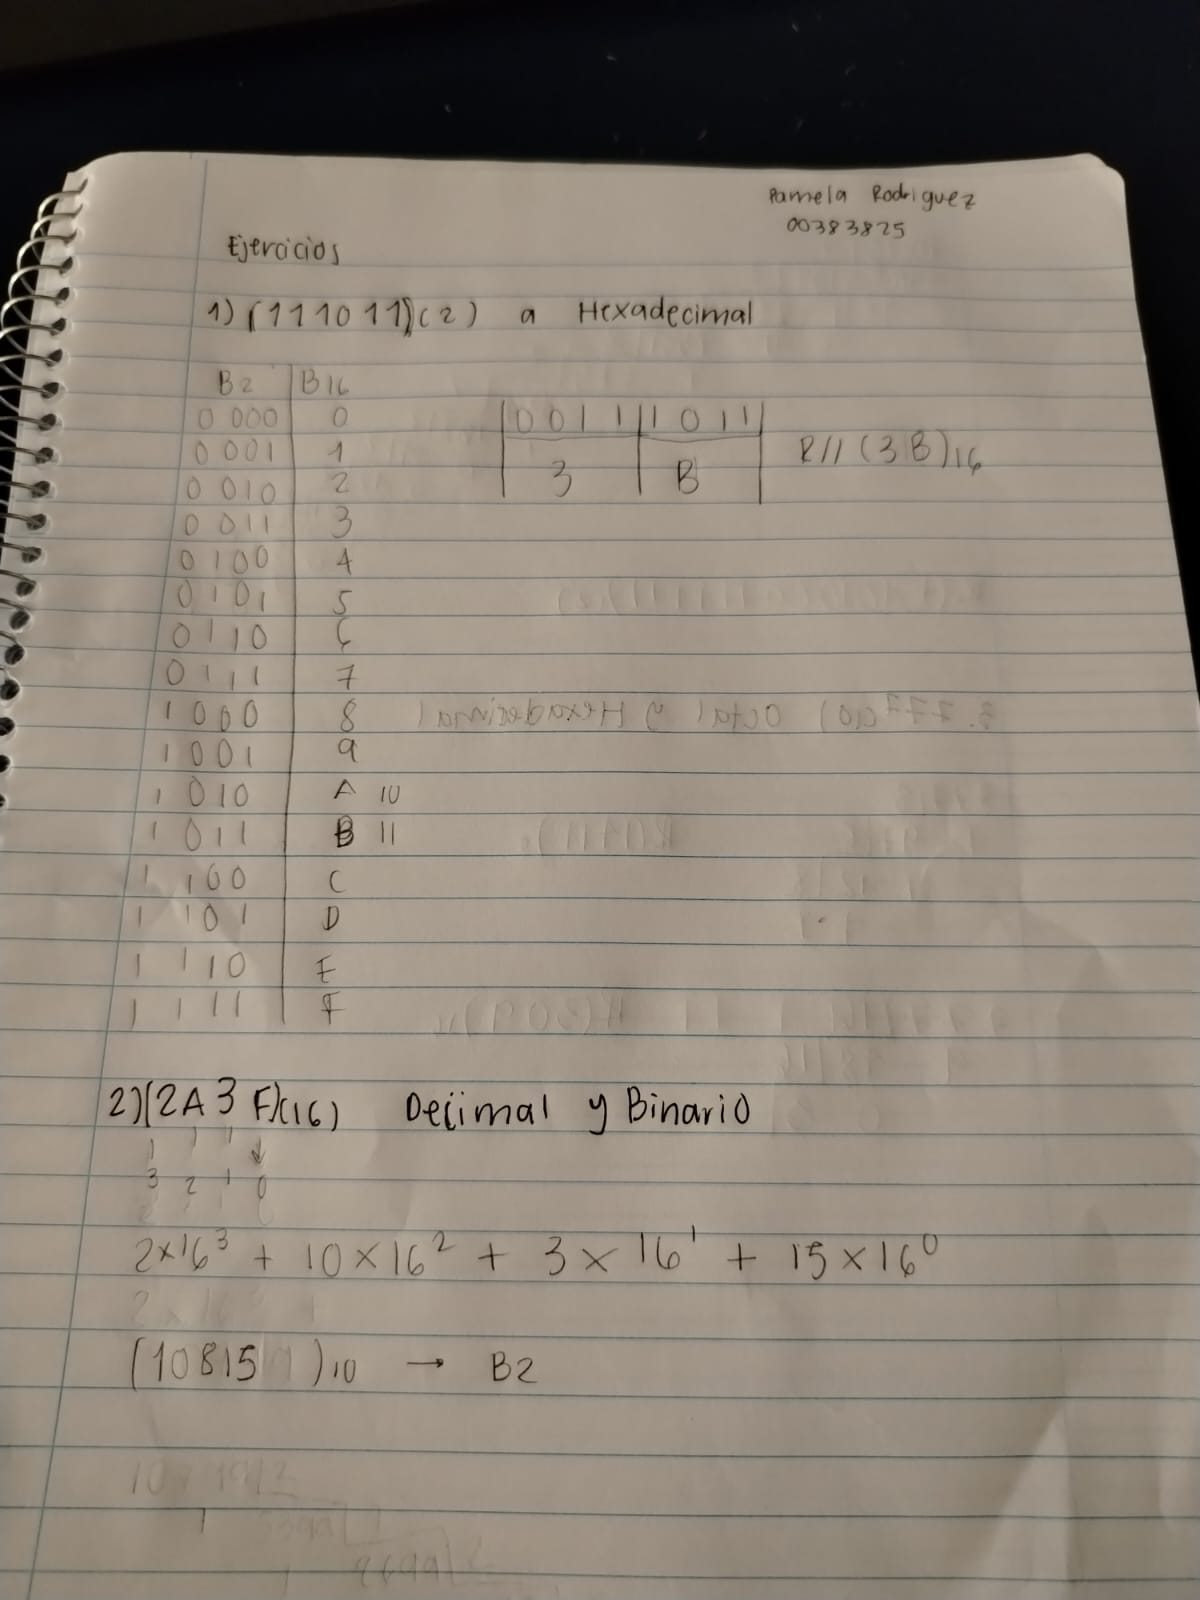 Pamela Rodriguez
00383825
Ejercicios
1) (111011)(2) a Hexadecimal
B2 B16
0000 0
0001 1
0010 2
0011 3
0100 4
0101 5
0110 6
0111 7
1000 8
1001 9
1010 A 10
1011 B 11
1100 C
1101 D
1110 E
1111 F
0011 1011
3 B
R// (3B)16
2) (2A3F)(16) Decimal y Binario
3 2 1 0
2×16³ + 10×16² + 3×16¹ + 15×16⁰
(10815)10 → B2